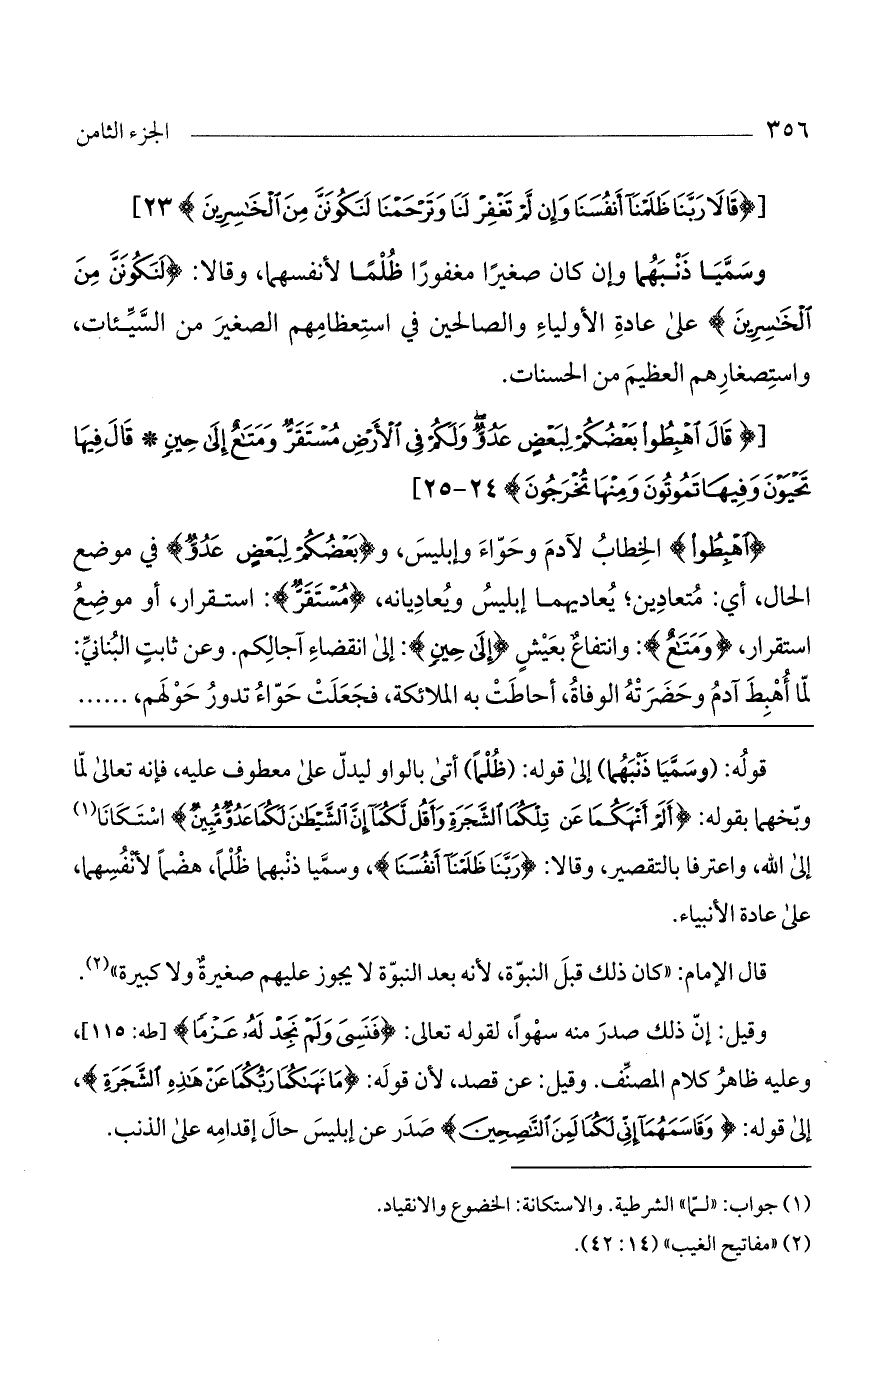 ٣٥٦ الجزء الثامن
[﴿قَالَا رَبَّنَا ظَلَمْنَآ أَنفُسَنَا وَإِن لَّمْ تَغْفِرْ لَنَا وَتَرْحَمْنَا لَنَكُونَنَّ مِنَ ٱلْخَٰسِرِينَ﴾ ٢٣]
وسَمَّيَـا ذَنْـبَهُما وإن كان صغيرًا مغفورًا ظُلْمًـا لأنفسهما، وقالا: ﴿لَنَكُونَنَّ مِنَ
ٱلْخَٰسِرِينَ﴾ علىٰ عادةِ الأولياءِ والصالحين في استِعظامِهم الصغيرَ من السَّيِّئات،
واستِصغارِهم العظيمَ من الحسنات.
[﴿قَالَ ٱهْبِطُوا۟ بَعْضُكُمْ لِبَعْضٍ عَدُوٌّ ۖ وَلَكُمْ فِى ٱلْأَرْضِ مُسْتَقَرٌّ وَمَتَٰعٌ إِلَىٰ حِينٍ * قَالَ فِيهَا
تَحْيَوْنَ وَفِيهَا تَمُوتُونَ وَمِنْهَا تُخْرَجُونَ﴾ ٢٤-٢٥]
﴿ٱهْبِطُوا۟﴾ الخِطابُ لآدمَ وحَوّاءَ وإبليسَ، و﴿بَعْضُكُمْ لِبَعْضٍ عَدُوٌّ﴾ في موضع
الحال، أي: مُتعادِين؛ يُعاديهمـا إبليسُ ويُعادِيانه، ﴿مُسْتَقَرٌّ﴾: استـقرار، أو موضِعُ
استقرار، ﴿وَمَتَٰعٌ﴾: وانتفاعٌ بعَيْشٍ ﴿إِلَىٰ حِينٍ﴾: إلىٰ انقضاءِ آجالِكم. وعن ثابتٍ البُنانيِّ:
لمّا أُهْبِطَ آدمُ وحَضَرَتْهُ الوفاةُ، أحاطَتْ به الملائكة، فجَعَلَتْ حَوّاءُ تدورُ حَوْلَهم، ......
قولُه: (وسَمَّيَا ذَنْبَهُما) إلىٰ قوله: (ظُلْماً) أتىٰ بالواو ليدلّ علىٰ معطوف عليه، فإنه تعالىٰ لمّا
وبّخهما بقوله: ﴿أَلَمْ أَنْهَكُمَا عَن تِلْكُمَا ٱلشَّجَرَةِ وَأَقُل لَّكُمَآ إِنَّ ٱلشَّيْطَٰنَ لَكُمَا عَدُوٌّ مُّبِينٌ﴾ اسْتَكَانَا(١)
إلىٰ الله، واعترفا بالتقصير، وقالا: ﴿رَبَّنَا ظَلَمْنَآ أَنفُسَنَا﴾، وسميَّا ذنْبهما ظُلْماً، هضْماً لأنْفُسِهما،
علىٰ عادة الأنبياء.
قال الإمام: «كان ذلك قبلَ النبوّة، لأنه بعد النبوّة لا يجوز عليهم صغيرةٌ ولا كبيرة»(٢).
وقيل: إنّ ذلك صدرَ منه سهْواً، لقوله تعالى: ﴿فَنَسِىَ وَلَمْ نَجِدْ لَهُۥ عَزْمًا﴾ [طه: ١١٥]،
وعليه ظاهرُ كلام المصنِّف. وقيل: عن قصد، لأن قولَه: ﴿مَا نَهَىٰكُمَا رَبُّكُمَا عَنْ هَٰذِهِ ٱلشَّجَرَةِ﴾،
إلىٰ قوله: ﴿وَقَاسَمَهُمَآ إِنِّى لَكُمَا لَمِنَ ٱلنَّٰصِحِينَ﴾ صَدَر عن إبليسَ حالَ إقدامِه علىٰ الذنب.
(١) جواب: «لـمّا» الشرطية. والاستكانة: الخضوع والانقياد.
(٢) «مفاتيح الغيب» (١٤: ٤٢).